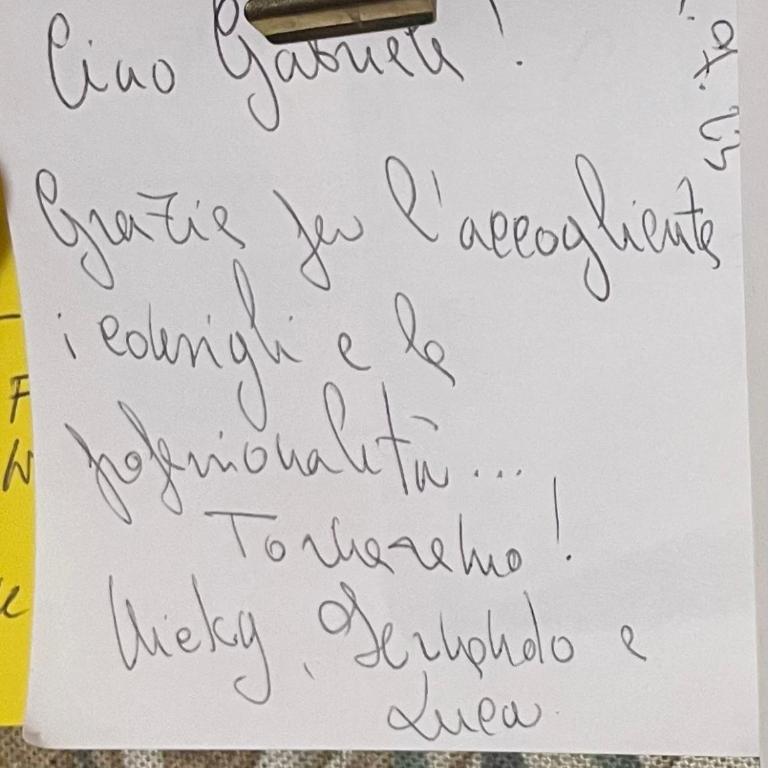 Ciao Gabriele !
Grazie per l'accogliente
i consigli e la
professionalità...
Torneremo !
Micky, Fernando e
Luca
F